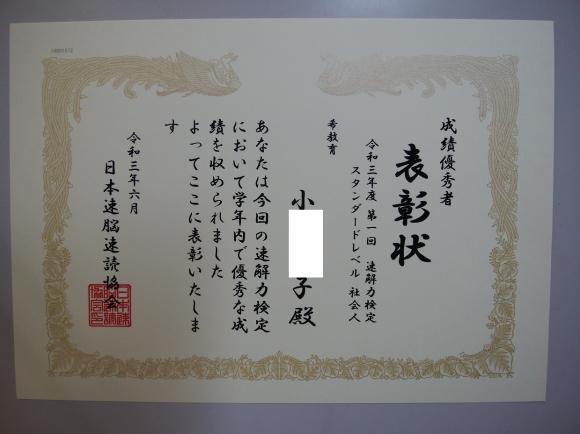 成績優秀者
表彰状
令和三年度 第一回 速解力検定
スタンダードレベル 社会人
希教育
小 子殿
あなたは今回の速解力検定
において学年内で優秀な成
績を収められました
よってここに表彰いたしま
す
令和三年六月
日本速脳速読協会